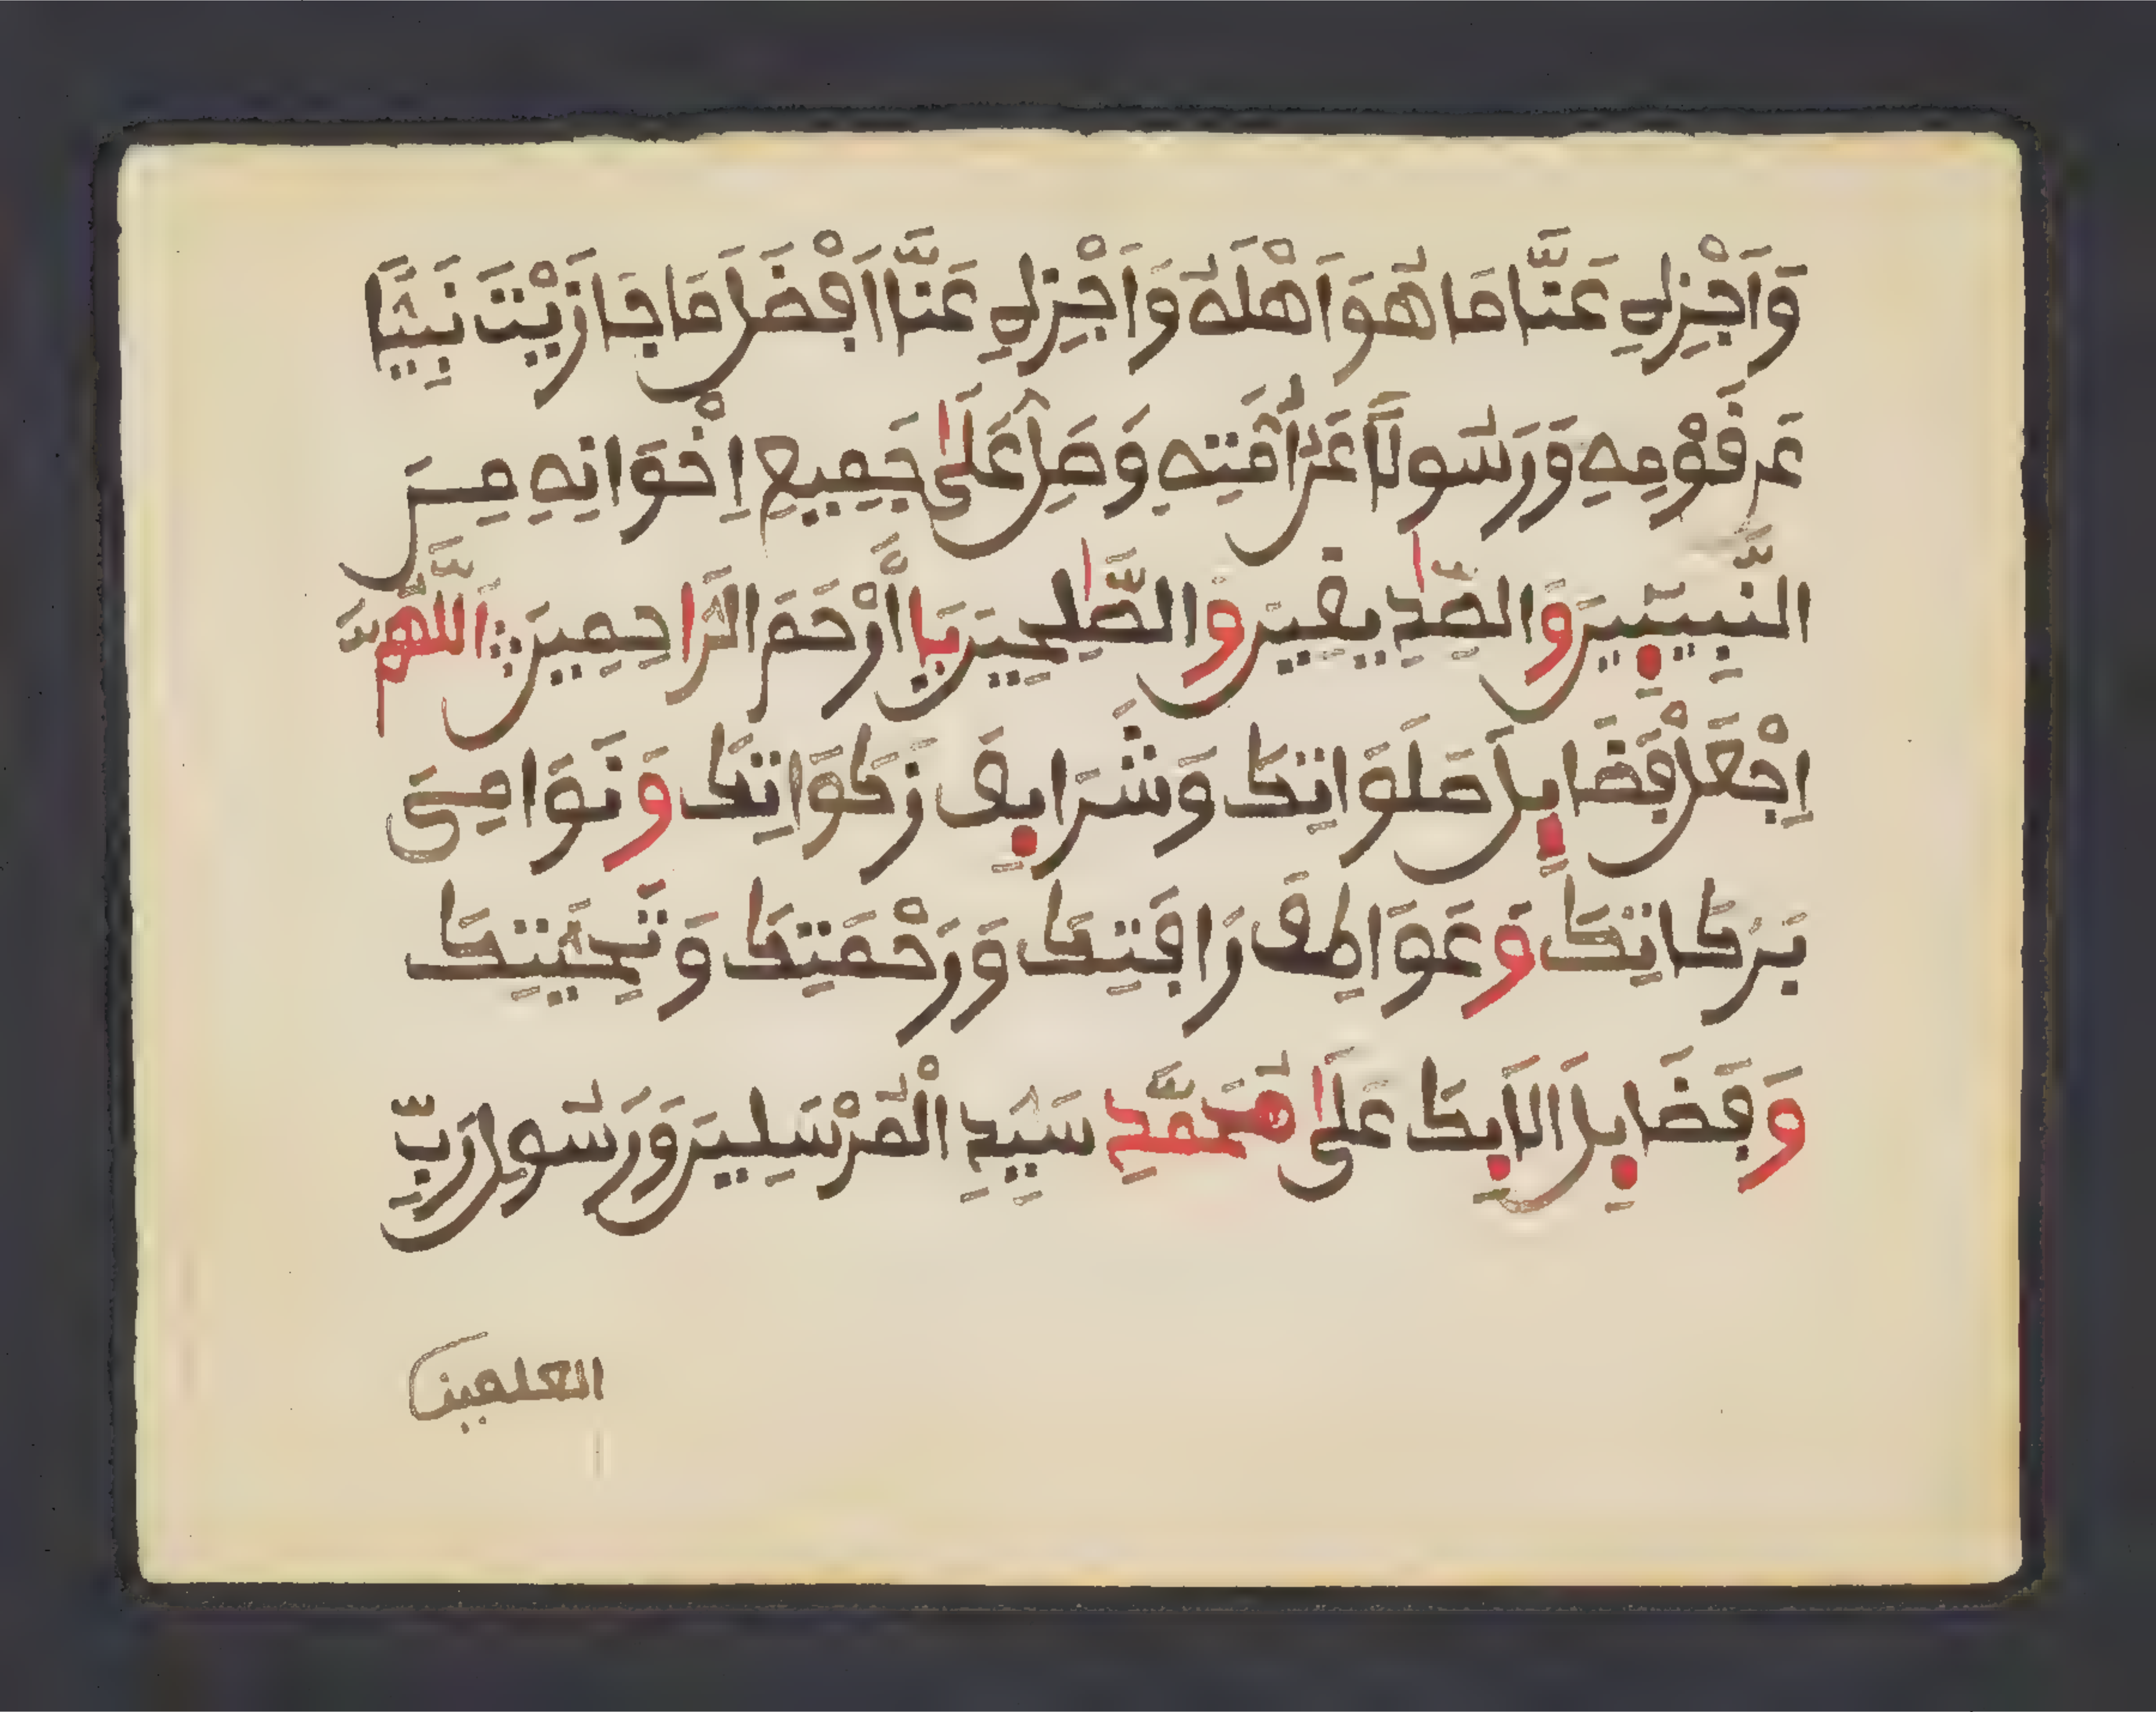 وَاَجْزِهِ عَنَّا مَا هُوَ اَهْلُهُ وَاَجْزِهِ عَنَّا اَفْضَلَ مَا جَازَيْتَ نَبِيًّا
عَن قَوْمِهِ وَرَسُولًا عَنْ اُمَّتِهِ وَصَلِّ عَلَىٰ جَمِيعِ اِخْوَانِهِ مِنَ
النَّبِيِّينَ وَالصِّدِّيقِينَ وَالصَّٰلِحِينَ يَا اَرْحَمَ الرَّاحِمِينَ ۞ اَللَّهُمَّ
اِجْعَلْ فَضَايِلَ صَلَوَاتِكَ وَشَرَايِفَ زَكَوَاتِكَ وَنَوَامِيَ
بَرَكَاتِكَ وَعَوَاطِفَ رَافَتِكَ وَرَحْمَتِكَ وَتَحِيَّتِكَ
وَفَضَايِلَ الَايِكَ عَلَىٰ مُحَمَّدٍ سَيِّدِ الْمُرْسَلِينَ وَرَسُولِ رَبِّ
العلمين